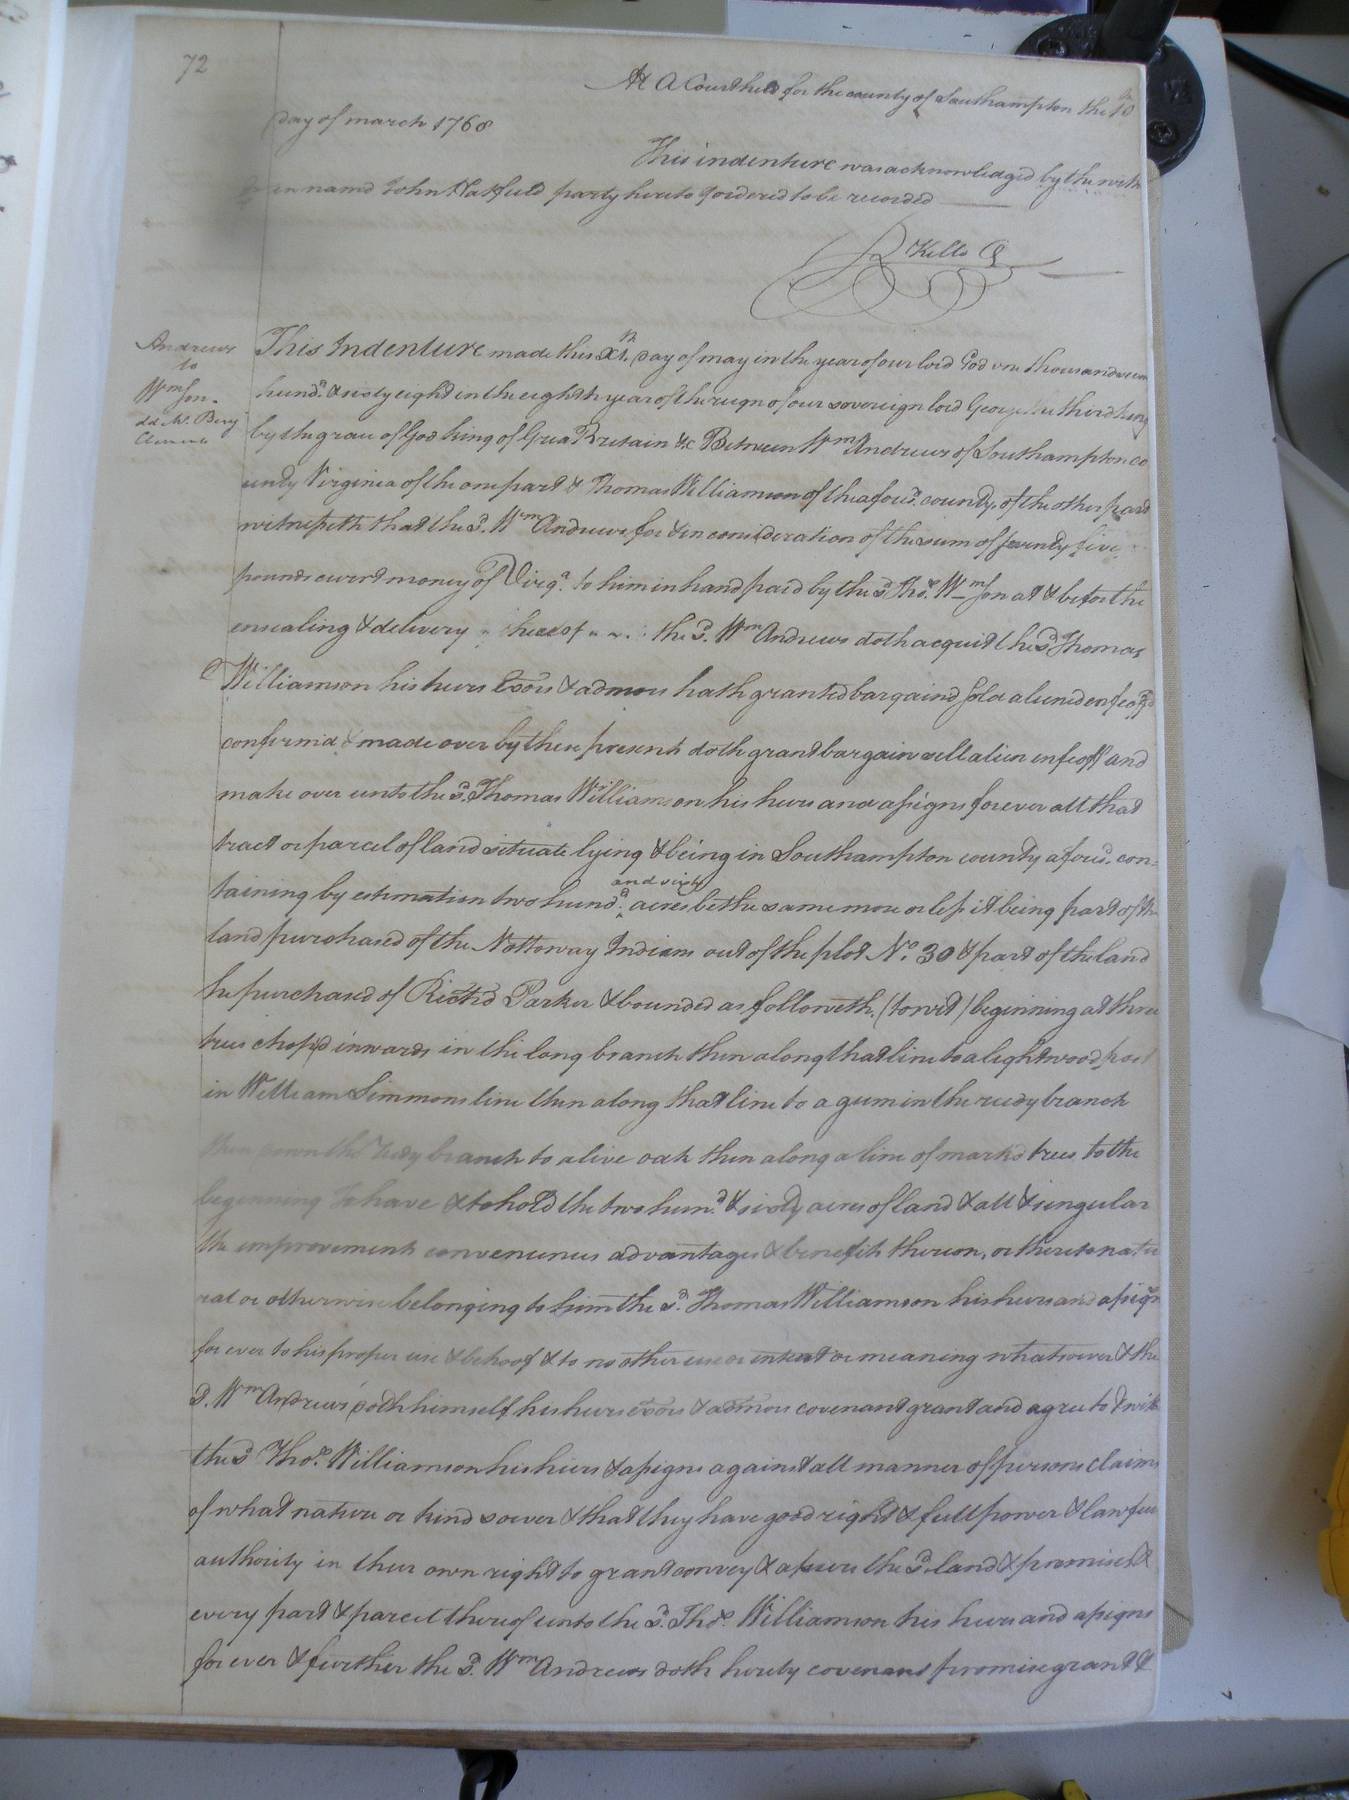 72
At a Court held for the county of Southampton the 10th
day of march 1768
This indenture was acknowledged by the with
in namd John Hatfield party hereto & ordered to be recorded
R Kello C
Andrews
to
Wmson.
dd
This Indenture made this day of may in the year of our lord God one thousand seven
hundd. & sixty eight in the eighth year of the reign of our sovereign lord George the third
by the grace of God king of Grea Britain &c Between Wm Andrews of Southampton co
unty Virginia of the one part & Thomas Williamson of the afousd. county of the other part
witnesseth that the sd. Wm Andrews for & in consideration of the sum of seventy five
pounds currt money of Virga. to him in hand paid by the sd Thos. Wmson at & before the
ensealing & delivery hereof the sd. Wm Andrews doth acquit the sd Thomas
Williamson his heirs Exors & admors hath granted bargaind sold aliend enfeoffd
confirmd & made over by these presents doth grant bargain sell alien enfeoff and
make over unto the sd. Thomas Williamson his heirs and assigns forever all that
tract or parcel of land situate lying & being in Southampton county afousd. con=
taining by estimation two hundd. and sixty acres be the same more or less it being part of the
land purchased of the Nottoway Indians out of the plot No. 30 & part of the land
he purchased of Richd Parker & bounded as followeth, (to wit) beginning at three
trees chopd inwards in the long branch then along that line to a lightwood post
in William Simmons line then along that line to a gum in the reedy branch
then down the reedy branch to a live oak then along a line of markd trees to the
beginning To have & to hold the two hund.d & sixty acres of land & all & singular
the improvements conveniences advantages & benefits thereon, or thereto natu
ral or otherwise belonging to him the sd. Thomas Williamson his heirs and assigns
for ever to his proper use & behoof & to no other use or intent or meaning whatsoever & the
sd. Wm Andrews doth himself his heirs exors & admors covenant grant and agree to & with
the sd Thos. Williamson his hiers & assigns against all manner of persons claims
of what nature or kind soever & that they have good right & full power & lawful
authority in their own right to grant convey & assure the sd land & premises &
every part & parcel thereof unto the sd. Thos. Williamson his heirs and assigns
for ever & further the sd. Wm Andrews doth hereby covenant promise grant &